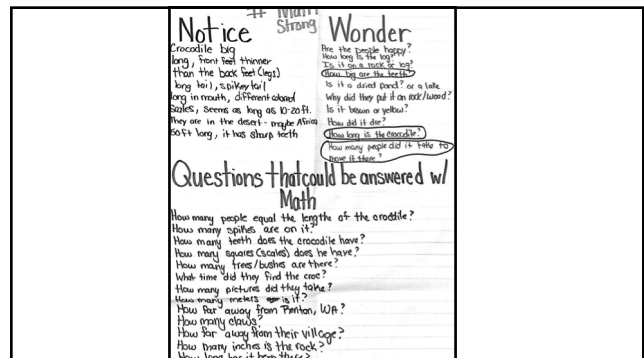 # Math Strong
Notice
Crocodile big
long, front feet thinner
than the back feet (legs)
long tail, spikey tail
long in mouth, different colored
scales, seems as long as 10-20 ft.
They are in the desert - maybe Africa
50 ft long, it has sharp teeth
Wonder
Are the people happy?
How long is the log?
Is it on a rock or log?
How big are the teeth?
Is it a dried pond? or a lake
Why did they put it on rock/wood?
Is it brown or yellow?
How did it die?
How long is the crocodile?
How many people did it take to
move it there?
Questions that could be answered w/
Math
How many people equal the length of the crocdile?
How many spikes are on it?
How many teeth does the crocodile have?
How many squares (scales) does he have?
How many trees/bushes are there?
What time did they find the croc?
How many pictures did they take?
How many meters is it?
How far away from Renton, WA?
How many claws?
How far away from their village?
How many inches is the rock?
How long has it been there?